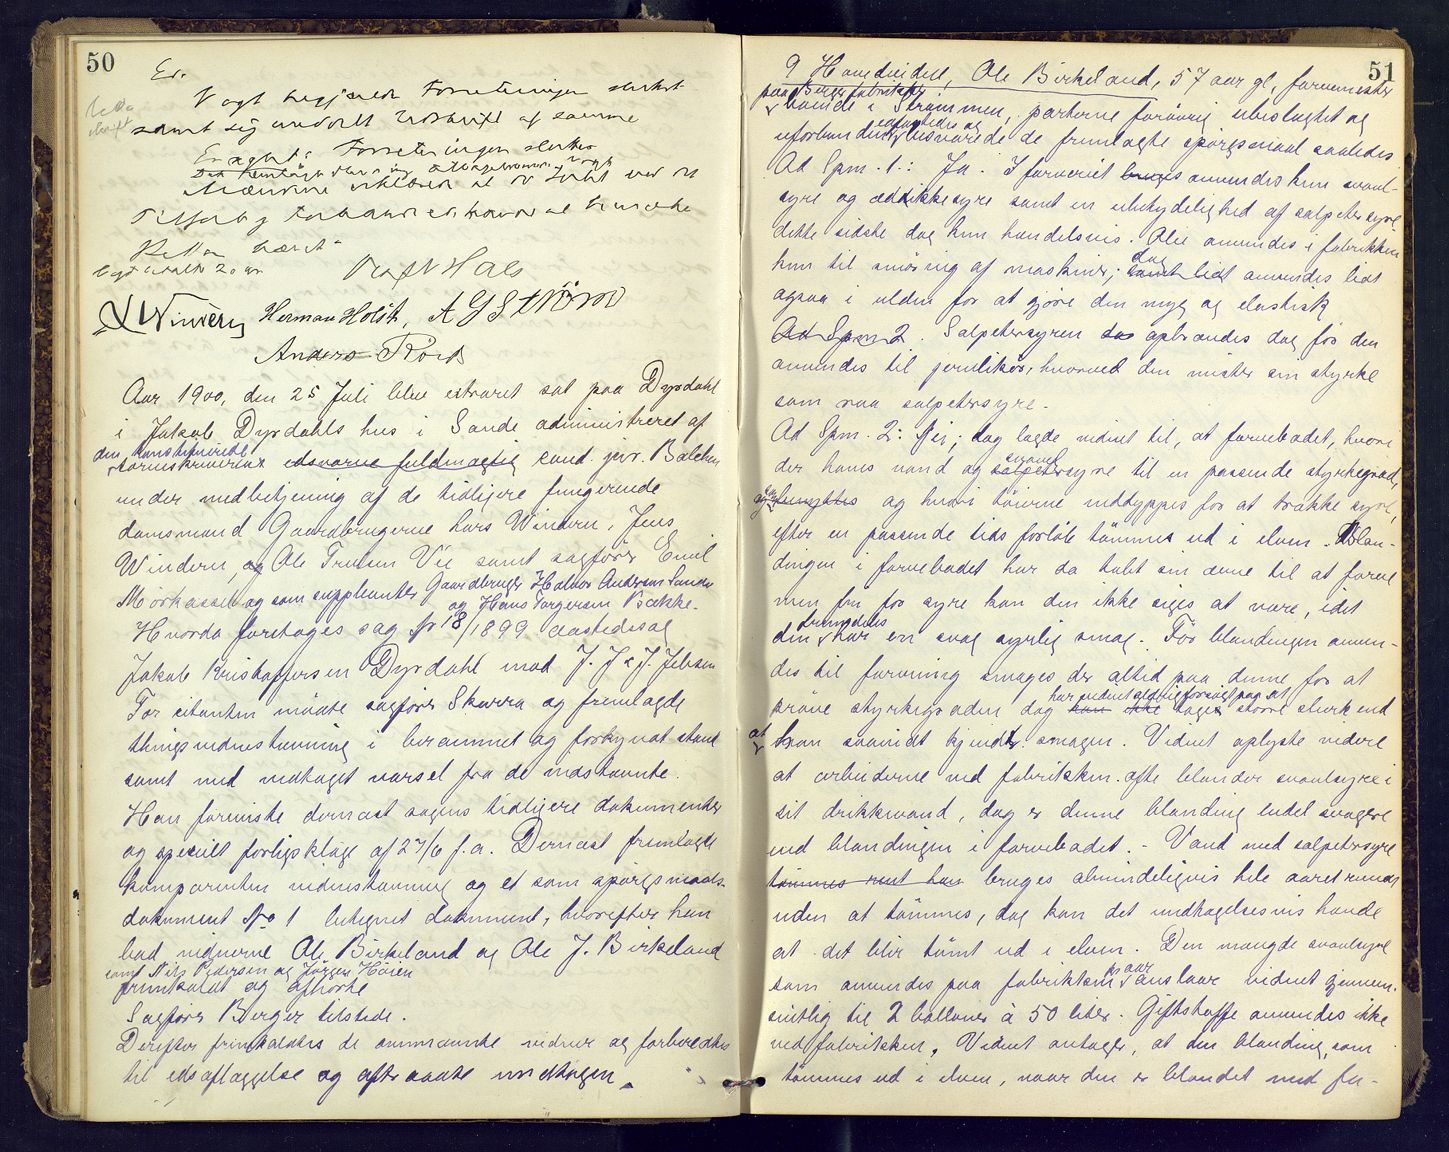 50
Er.
Vogt begjærede Forretningen sluttet
samt sig meddelt Udskrift af samme
Er agtet: Forretningen sluttes
Mændene erklærer at de Intet ved at
Tilføie og forbauer er havde at bemærke
Retten hævet
Oraf N Hals
L Windern Herman Holst, A G Strøm
Anders Röed
Aar 1900, den 25 Juli blev extraret sat paa Dyrdahl
i Jakob Dyrdahls hus i Sande administreret af
den konstituerede
sorenskriverens edsvorne fuldmægtig cand. jur. Balchen
under medbetjening af de tidligere fungerende
domsmænd Gaardbrugerne Lars Windern, Jens
Windern, og Ole Truesen Vee samt sagfører Emil
Mørkassel og som suppleanter Gaardbruger Halvor Andersen Sande
og Hans Torgersen Bække.
Hvorda foretages sag No 18/1899 aastedssag
Jakob Kristoffersen Dyrdahl mod J. J & J. Jebsen
For citanten mødte sagfører Skarra og fremlagde
thingsvidnestevning i berammet og forkyndt stand
samt med vedtaget varsel fra de indstevnte.
Han foreviste dernæst sagens tidligere dokumenter
og specielt forligsklage af 27/6 f.a. Dernæst fremlagde
komparenten vidnestevning og et som spørgsmaals-
dokument No 1 betegnet dokument, hvorefter han
bad vidnerne Ole Birkeland og Ole J. Birkeland
samt Nils Pedersen og Jørgen Høien
fremkaldt og afhørte
Sagfører Berger tilstede.
Derefter fremkaldtes de ommeldte vidner og forberedtes
til edsaflæggelse og aftraadte undtagen
51
Hovedvidnet, Ole Birkeland, 57 aar gl, farvemester
paa Berger fabrikker
boende i Strømmen, parterne forøvrig ubeslægtet og
edfæstedes og
uforbunden, besvarede de fremlagte spørgsmaal saaledes
Ad Spm. 1: Ja. I farveriet bruges anvendes kun svovl-
syre og eddikkesyre samt en ubetydelighed af salpetersyre
dette sidste dog kun hændelsvis. Olie anvendes i fabrikken
kun til smøring af maskiner;
dog
samt lidt anvendes lidt
ogsaa i ulden for at gjøre den myg og elastisk
Ad Spm 2. Salpetersyren opbrændes dog før den
anvendes til jernlikør, hvorved den mister sin styrke
som raa salpetersyre.
Ad Spm. 2: Nei; dog lagde vidnet til, at farvebadet, hvori
svovl
der haves vand og salpetersyre til en passende styrkegrad,
benyttes og hvori tøierne neddyppes for at trække syre,
efter en passende tids forløb tømmes ud i elven. Blan-
dingen i farvebadet har da tabt sin ævne til at farve
men fri for syre kan den ikke siges at være, idet
fremdeles
den har en svag syrlig smag. Før blandingen anven-
des til farvning smages der altid paa denne for at
har vidnet aldrig forsøgt paa at
prøve styrkegraden dog kan ikke tages større slurk end
at
kan saavidt kjendt smagen. Vidnet oplyste videre
at arbeiderne ved fabrikken ofte blander svovlsyre i
sit drikkevand, dog er denne blanding endel svagere
end blandingen i farvebadet. - Vand med salpetersyre
tømmes rent han bruges almindeligvis hele aaret rundt
uden at tømmes, dog kan det undtagelsesvis hænde
at det blir tømt ud i elven. Den mængde svovlsyre
pr aar
som anvendes paa fabrikken anslaar vidnet gjennem-
snitlig til 2 balloner à 50 liter. Giftstoffe anvendes ikke
ved fabrikken. Vidnet antager, at den blanding, som
tømmes ud i elven, naar den er blandet med fer-